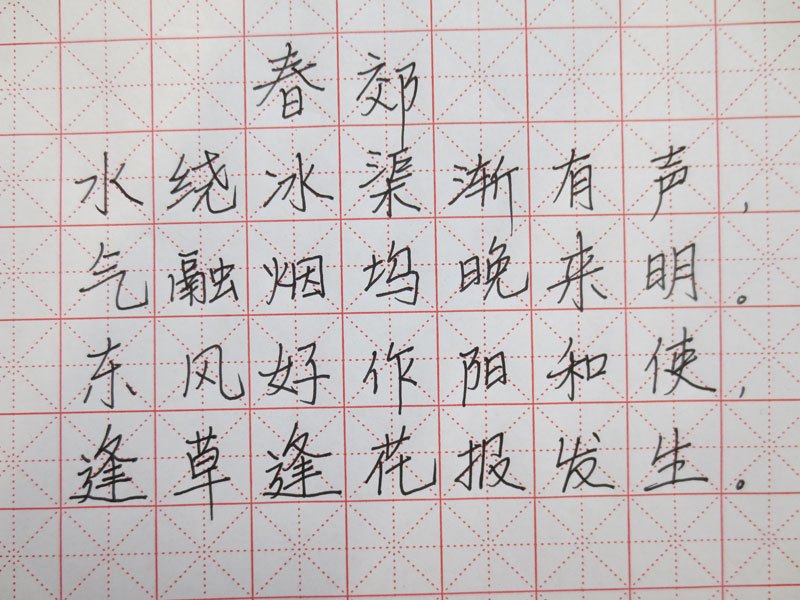 春郊
水绕冰渠渐有声,
气融烟坞晚来明。
东风好作阳和使,
逢草逢花报发生。